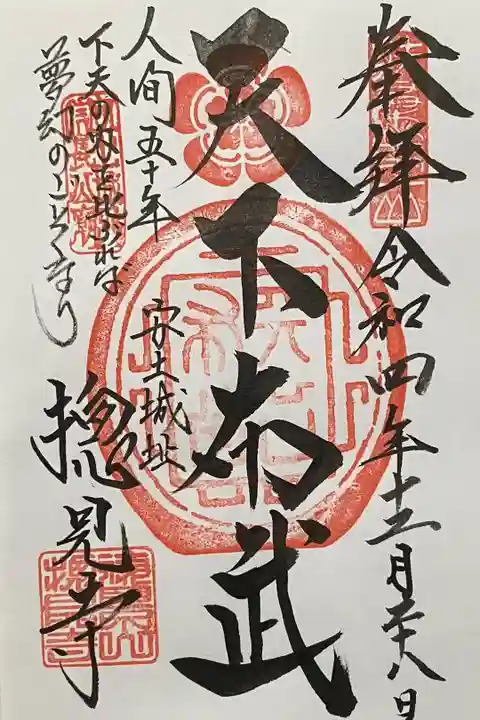 奉拝 令和四年十二月二十八日
天下布武
安土城址
人間五十年
下天の内を比ぶれば
夢幻のごとくなり
摠見寺